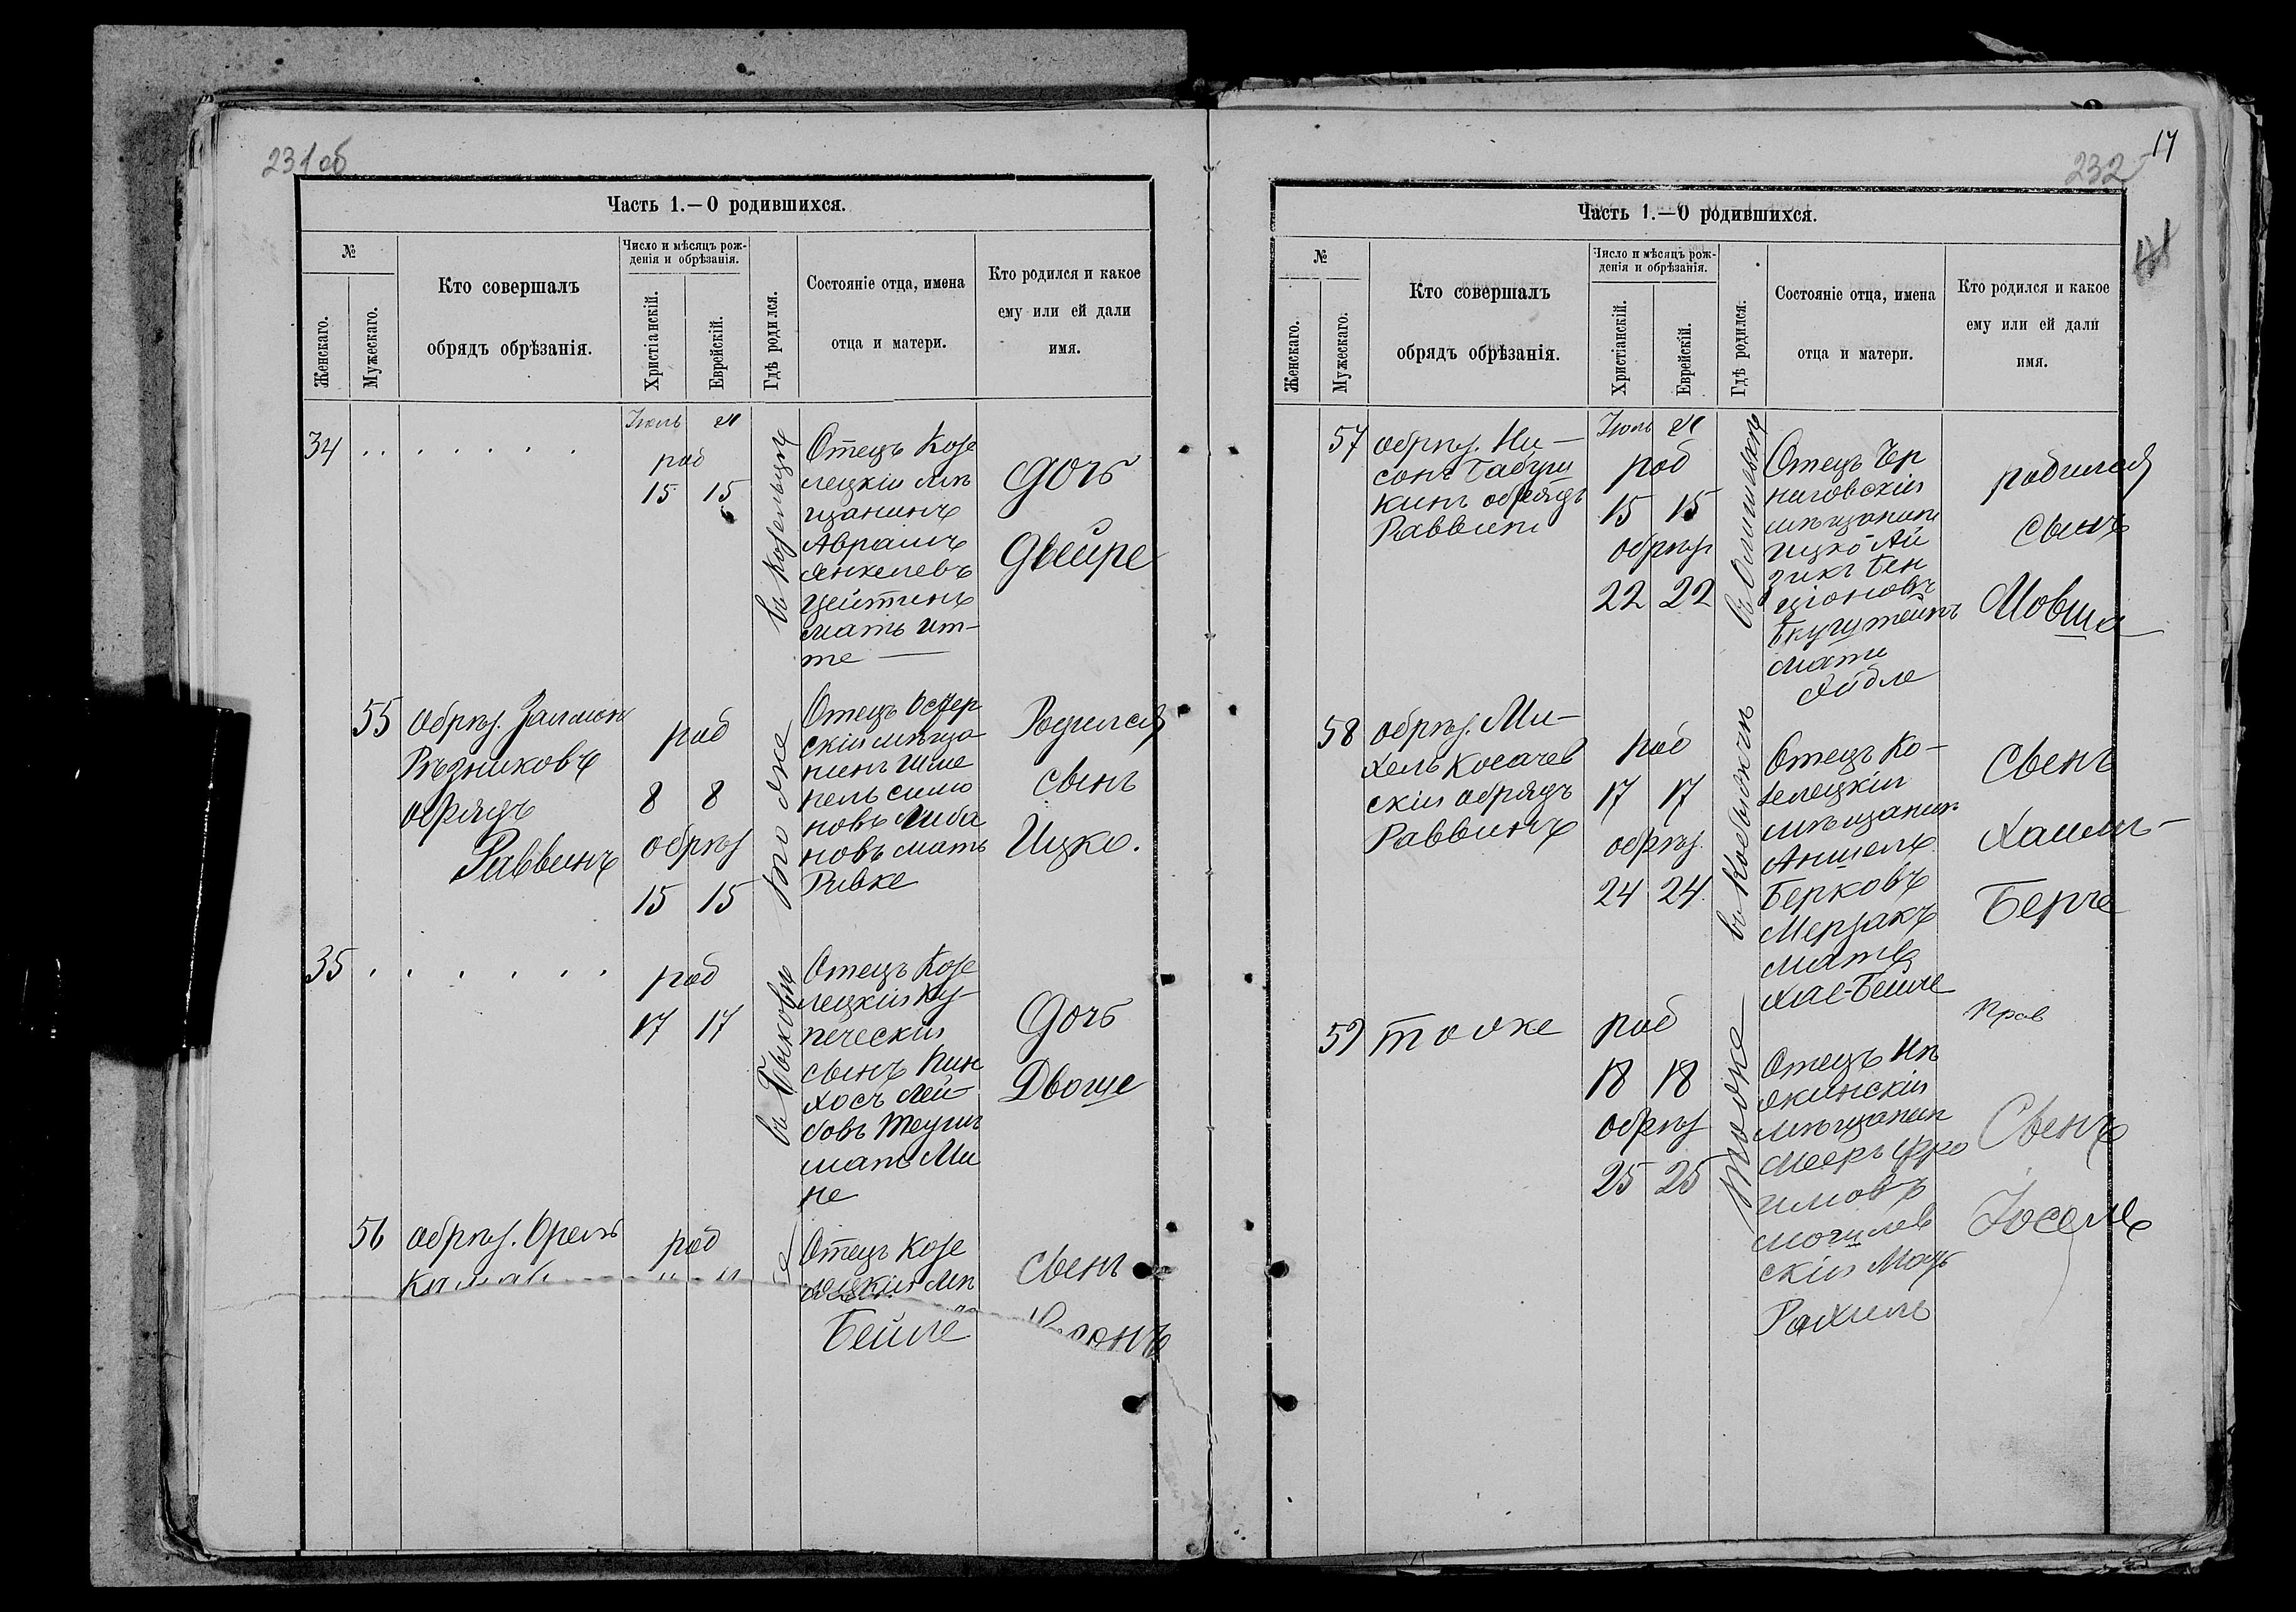 231об
Часть 1.—О родившихся.
№
Женскаго.
Мужескаго.
Кто совершалъ
обрядъ обрѣзанія.
Число и мѣсяцъ рож-
денія и обрѣзанія.
Христіанскій.
Еврейскій.
Гдѣ родился.
Состояніе отца, имена
отца и матери.
Кто родился и какое
ему или ей дали
имя.
34
Іюль
род
15 15
въ Козельцѣ
Отецъ Козе
лецкій мѣ
щанинъ
Авраамъ
Янкелевъ
Цейтинъ
мать Ит-
те
дочь
Двейре
55
обрѣз. Залмон
Рѣзниковъ
обрядъ
Раввинъ
род
8 8
обрѣз
15 15
то же
Отецъ Остер
скій мѣща
нинъ Шме
рель Симо
новъ
новъ мать
Ривке
Родился
сынъ
Ицко.
35
род
17 17
въ Быковѣ
Отецъ Козе
лецкій Ку-
печескій
сынъ Пин
хосъ Лей-
бовъ
мать Ми
не
дочь
Двоше
56
обрѣз. Орель
род
Отецъ Козе
лецкій мѣ
Бейле
сынъ
17
232
Часть 1.—О родившихся.
№
Женскаго.
Мужескаго.
Кто совершалъ
обрядъ обрѣзанія.
Число и мѣсяцъ рож-
денія и обрѣзанія.
Христіанскій.
Еврейскій.
Гдѣ родился.
Состояніе отца, имена
отца и матери.
Кто родился и какое
ему или ей дали
имя.
57
обрѣз. Ни-
сонъ Бабуш
кинъ обрядъ
Раввинъ
Іюль
род
15 15
обрѣз
22 22
Отецъ Чер
ниговскій
мѣщанинъ
Ицко-Ай
зикъ Бен
ціоновъ
мать
Хайбле
родился
сынъ
Мовша
58
обрѣз. Ми-
хель Косачев
скій обрядъ
Раввинъ
род
17 17
обрѣз.
24 24
Отецъ Ко-
зелецкій
мѣщанин
Аншель
Берковъ
Мерзакъ
мать
Хае-Бейле
сынъ
Хаим-
Берче
59
тоже
род
18 18
обрѣз
25 25
тоже
Отецъ Нѣ
жинскій
мѣщанин
Мееръ Фро
имовъ
Могилев
скій Мать
Рахиль
Сынъ
Іосель